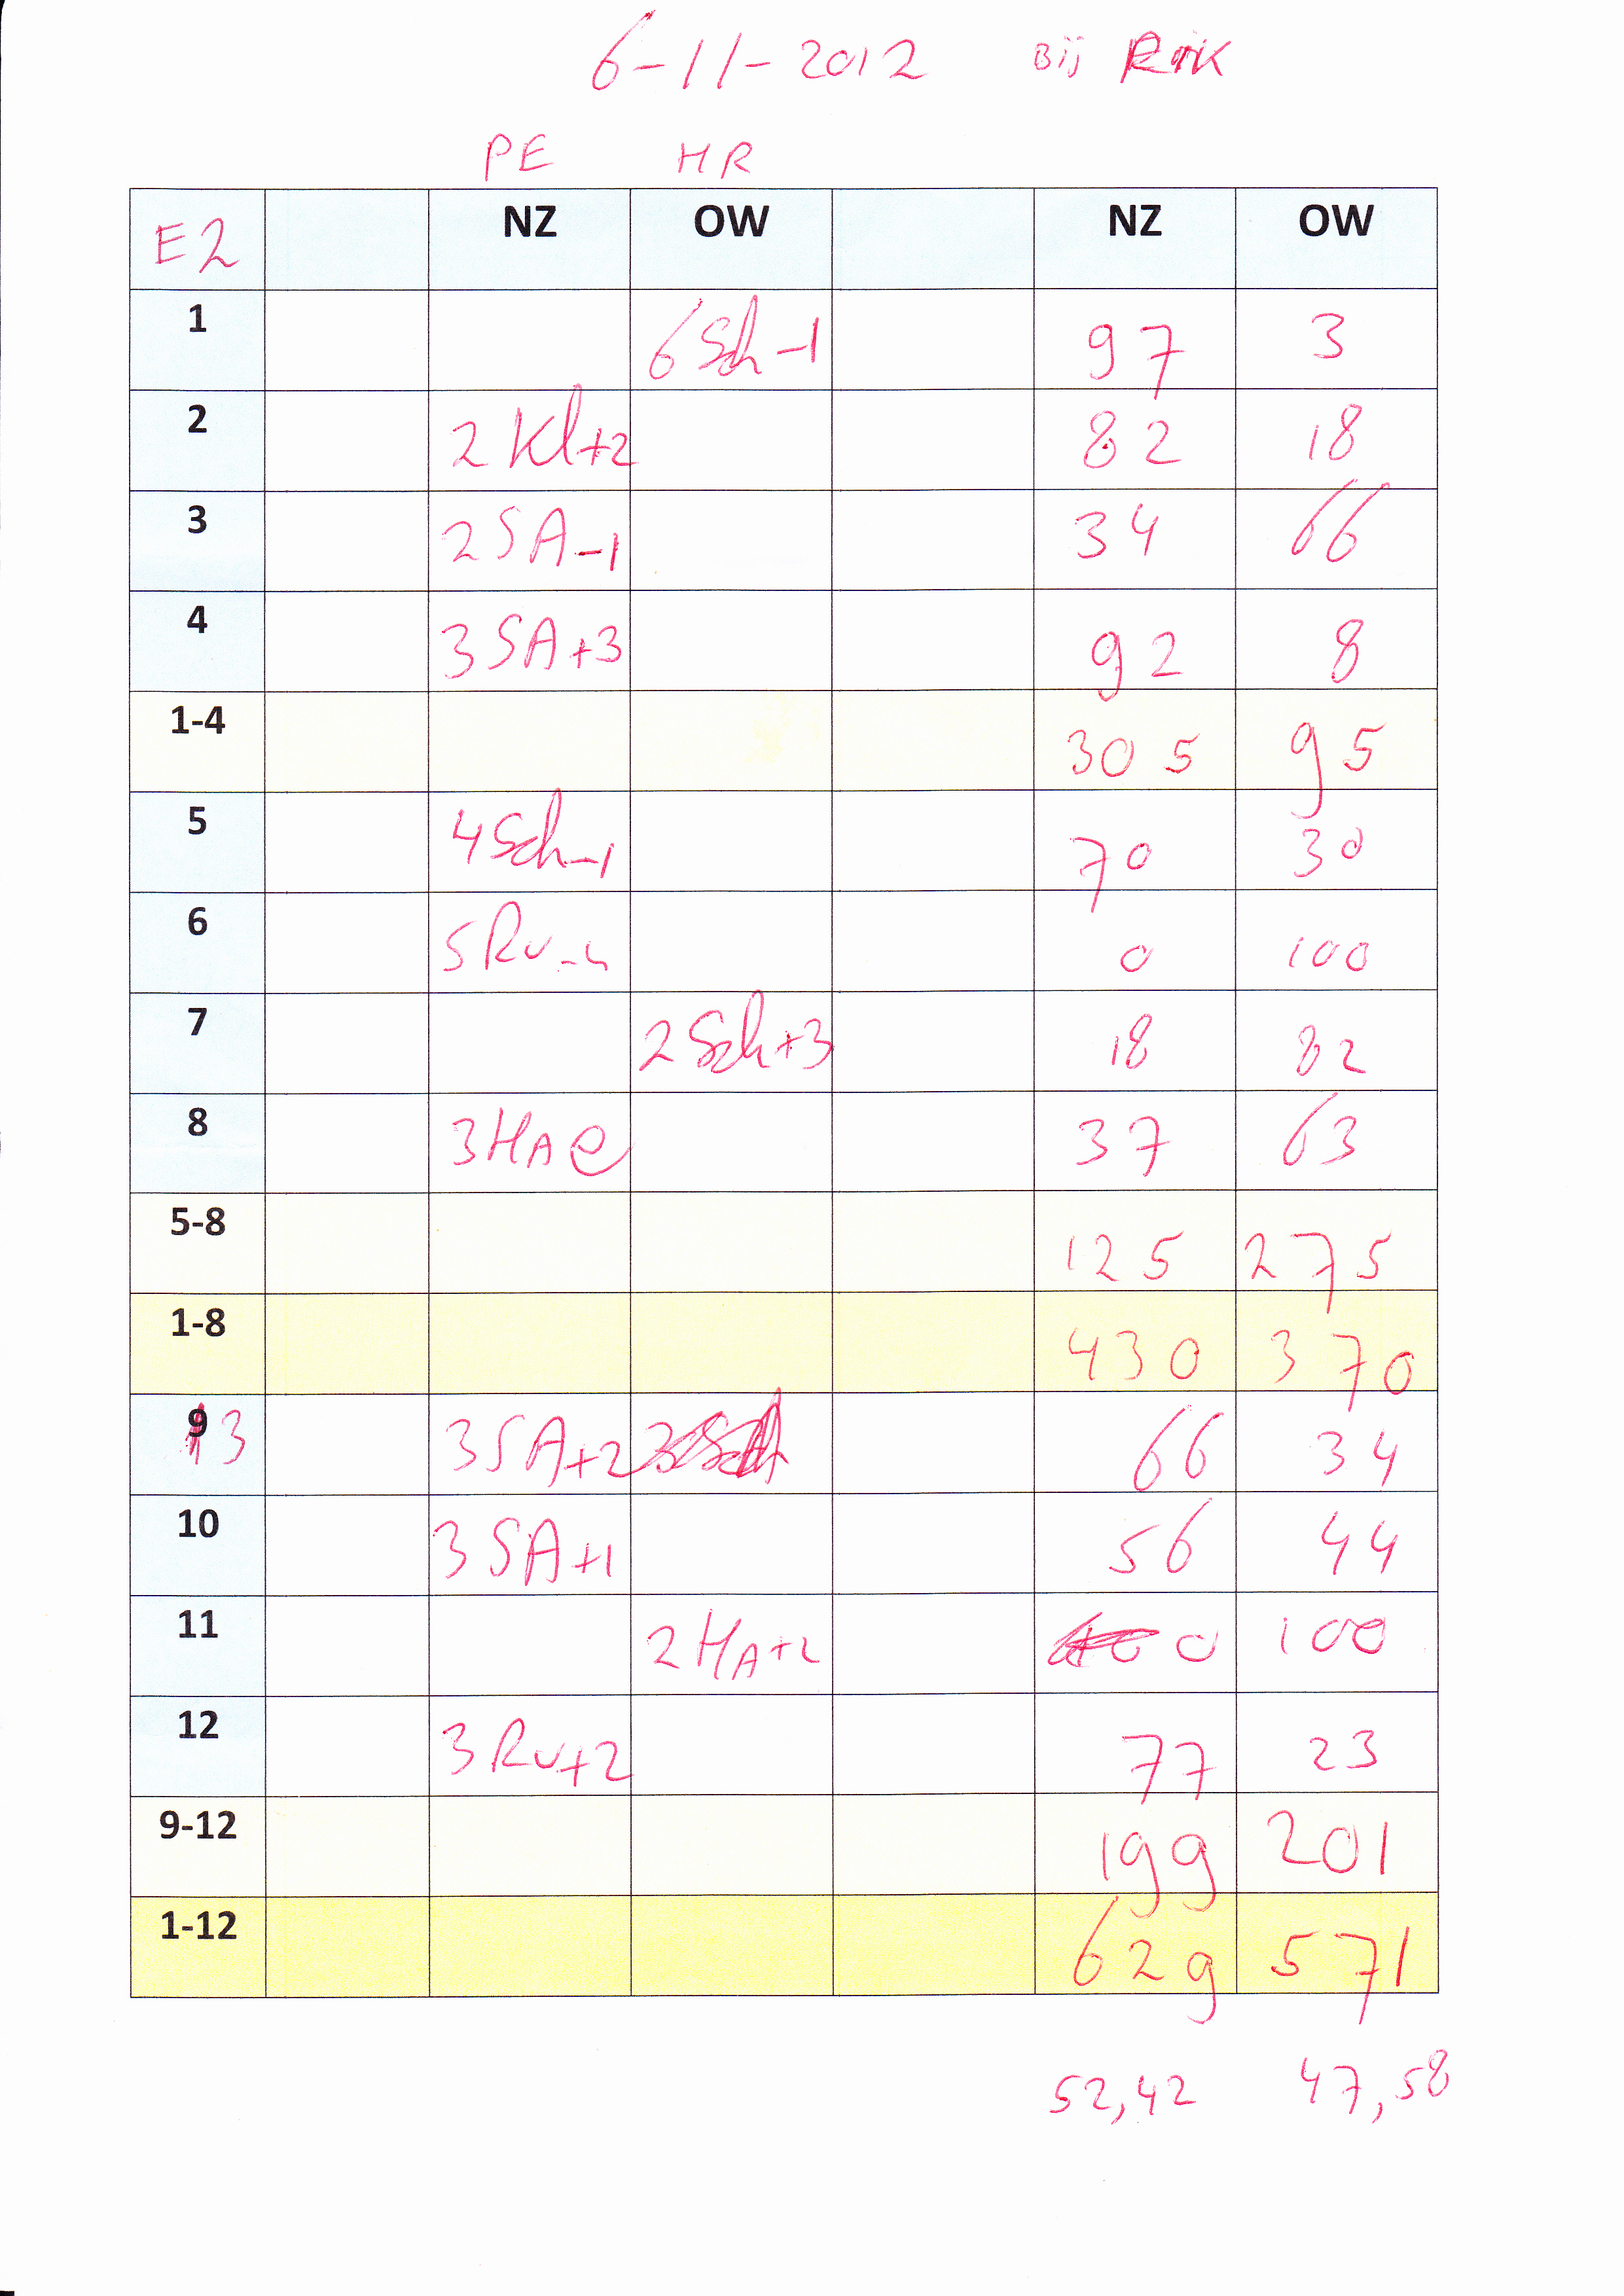 6-11-2012 Bij RiK
PE HR
E2 NZ OW NZ OW
1 6Sch-1 97 3
2 2Kl+2 82 18
3 2SA-1 34 66
4 3SA+3 92 8
1-4 305 95
5 4Sch-1 70 30
6 5Ru-4 0 100
7 2Sch+3 18 82
8 3HAC 37 63
5-8 125 275
1-8 430 370
13 3SA+2 66 34
10 3SA+1 56 44
11 2HA+2 0 100
12 3Ru+2 77 23
9-12 199 201
1-12 629 571
52,42 47,58